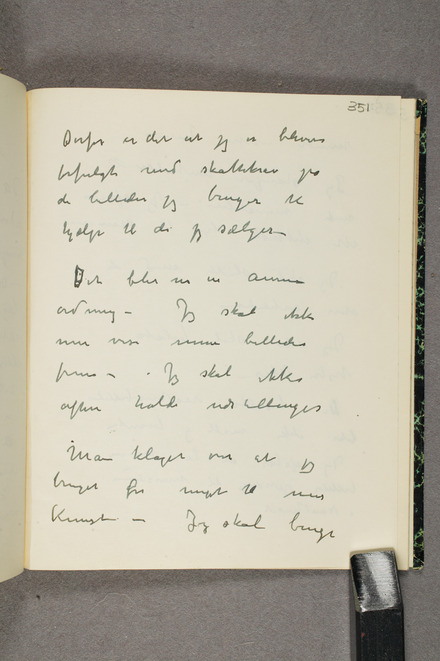 351
Derfor er det at jeg er bleven
forfulgt med skattekrav på
de billeder jeg bruger til
hjælp til de jeg sælger –
Det blir nu en annen
ordning – Jeg skal ikke
mer vise mine billeder
frem – – Jeg skal ikke
oftere holde udstillinger
Man klager over at jeg
bruger for meget til min
Kunst – Jeg skal bruge